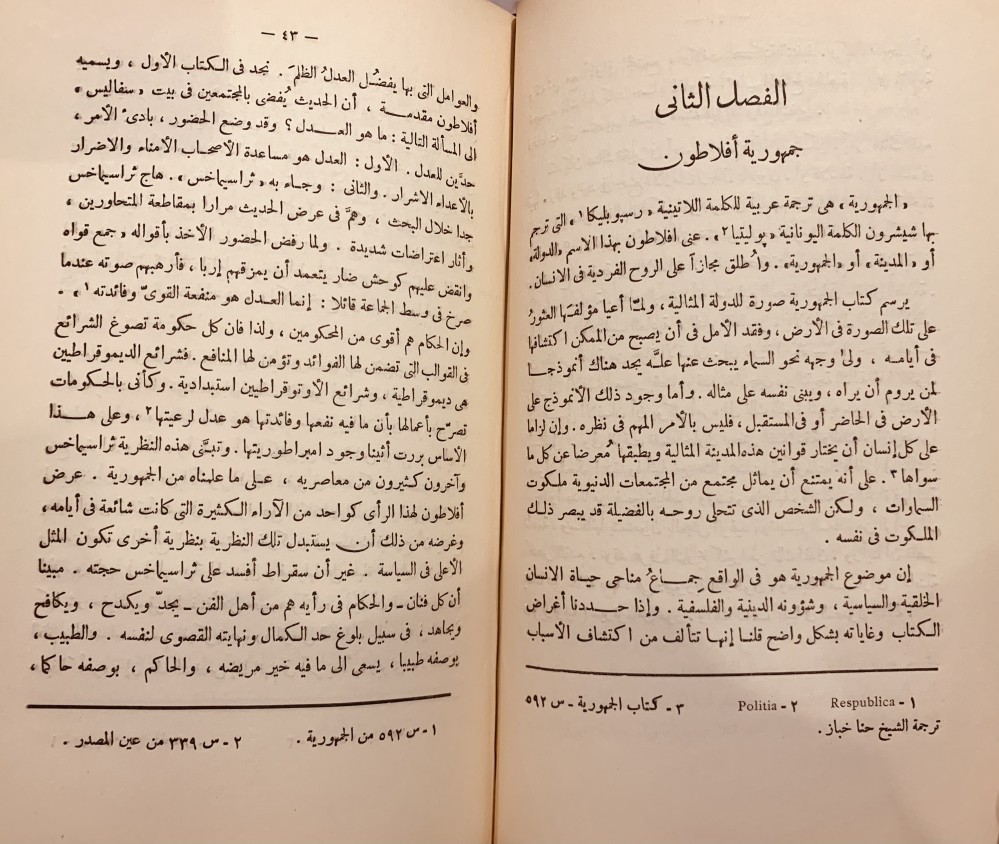 الفصل الثانى
جمهورية أفلاطون
«الجمهورية» هى ترجمة عربية للكلمة اللاتينية «رسپوبليكا١» التى ترجم
بها شيشرون الكلمة اليونانية «پوليتيا٢». عنى افلاطون بهذا الاسم «الدولة»
أو «المدينة» أو «الجمهورية». واُطلق مجازاً على الروح الفردية فى الانسان.
يرسم كتاب الجمهورية صورة للدولة المثالية، ولمّا أعيا مؤلفَها العثورُ
على تلك الصورة فى الأرض، وفقد الأمل فى أن يصبح من الممكن اكتشافها
فى أيامه، ولىٰ وجهه نحو السماء يبحث عنها علَّه يجد هناك أنموذجا
لمن يروم أن يراه، ويبنى نفسه على مثاله. وأما وجود ذلك الأنموذج على
الأرض فى الحاضر أو فى المستقبل، فليس بالأمر المهم فى نظره. وإن لزاما
على كل إنسان أن يختار قوانين هذه المدينة المثالية ويطبقها مُعرضا عن كل ما
سواها٣. على أنه يمتنع أن يماثل مجتمع من المجتمعات الدنيوية ملكوت
السماوات، ولكن الشخص الذى تتحلى روحه بالفضيلة قد يبصر ذلك
الملكوت فى نفسه.
إن موضوع الجمهورية هو فى الواقع جماعُ مناحى حياة الانسان
الخلقية والسياسية، وشؤونه الدينية والفلسفية. وإذا حددنا أغراض
الكتاب وغاياته بشكل واضح قلنا إنها تتألف من اكتشاف الأسباب
١ - Respublica ٢ - Politia ٣ - كتاب الجمهورية - س ٥٩٢
ترجمة الشيخ حنا خباز.
— ٤٣ —
والعوامل التى بها يفضُل العدلُ الظلمَ. نجد فى الكتاب الأول، ويسميه
أفلاطون مقدمة، أن الحديث يُفضى بالمجتمعين فى بيت «سفاليس»
الى المسألة التالية: ما هو العدل؟ وقد وضع الحضور، بادىء الأمر،
حدَّين للعدل. الأول: العدل هو مساعدة الأصحاب الأمناء والاضرار
بالأعداء الاشرار. والثانى: وجاء به «ثراسيماخس». هاج ثراسيماخس
جدا خلال البحث، وهمَّ فى عرض الحديث مرارا بمقاطعة المتحاورين،
وأثار اعتراضات شديدة. ولما رفض الحضور الأخذ بأقواله «جمع قواه
وانقض عليهم كوحش ضار يتعمد أن يمزقهم إربا، فأرهبهم صوته عندما
صرخ فى وسط الجماعة قائلا: إنما العدل هو منفعة القوىّ وفائدته١» -
وإن الحكام هم أقوى من المحكومين، ولذا فان كل حكومة تصوغ الشرائع
فى القوالب التى تضمن لها الفوائد وتؤمن لها المنافع. فشرائع الديموقراطيين
هى ديموقراطية، وشرائع الأوتوقراطيين استبدادية. وكأنى بالحكومات
تصرّح بأعمالها بأن ما فيه نفعها وفائدتها هو عدل لرعيتها٢، وعلى هذا
الأساس بررت أثينا وجود امبراطوريتها. وتبنَّى هذه النظرية ثراسيماخس
وآخرون كثيرون من معاصريه، على ما علمناه من الجمهورية. عرض
أفلاطون لهذا الرأى كواحد من الآراء الكثيرة التى كانت شائعة فى أيامه،
وغرضه من ذلك أن يستبدل تلك النظرية بنظرية أخرى تكون المثل
الأعلى فى السياسة. غير أن سقراط أفسد على ثراسيماخس حجته. مبينا
أن كل فنان - والحكام فى رأيه هم من أهل الفن - يجدّ ويكدح، ويكافح
ويجاهد، فى سبيل بلوغ حد الكمال ونهايته القصوى لنفسه. والطبيب،
بوصفه طبيبا، يسعى الى ما فيه خير مريضه، والحاكم، بوصفه حاكما،
١ - س ٥٩٢ من الجمهورية. ٢ - س ٣٣٩ من عين المصدر.